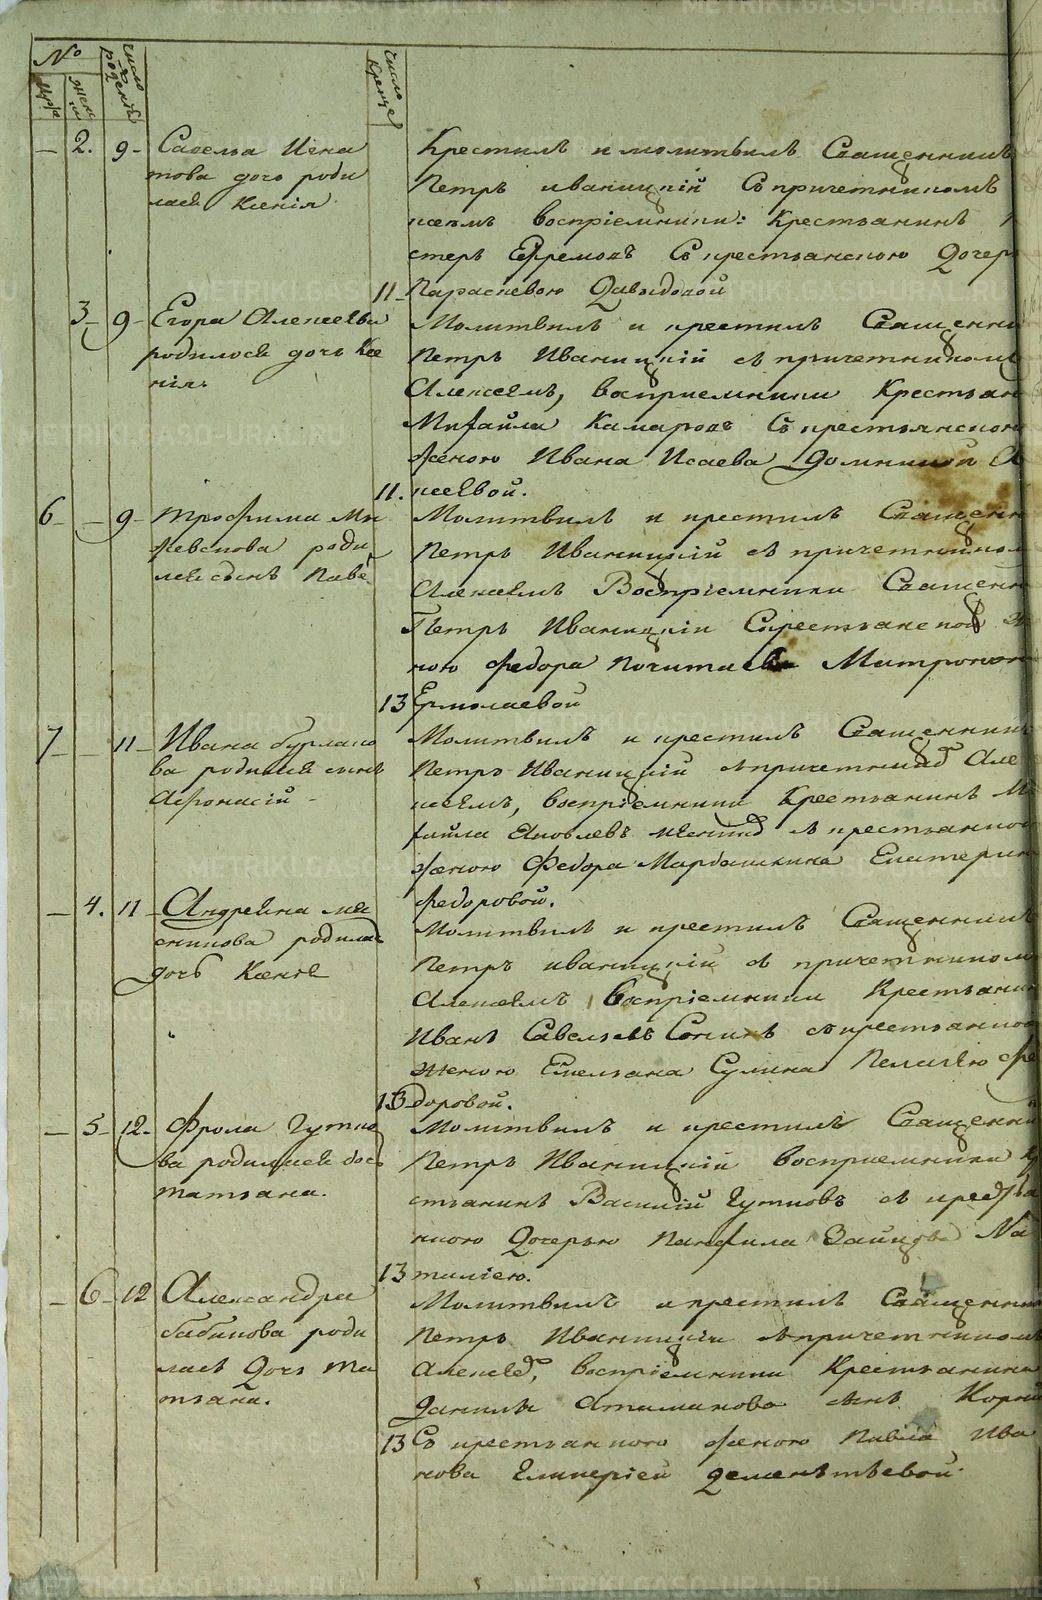 №
число рожденiй
число креще
муже
жен
— 2. 9 Савелья Игна
това дочь роди
лась Ксенiя
Крестилъ и молитвилъ Священникъ
Петръ Иваницкiй Съ причетникомъ
воспрiемники: Крестьянинъ
Ефремовъ Съ крестьянскою Дочерь
11 Парасковею Давыдовой
3 9 Егора Алексеева
родилась дочь Ксе
нiя.
Молитвилъ и крестилъ Священни
Петръ Иваницкiй съ причетникомъ
Алексеемъ, восприемники Крестьян
Михайла Комаровъ Съ крестьянскою
женою Ивана Исаева Домникой
11. ксеевой.
6 — 9 Трофима
роди
лся сынъ Паве
Молитвилъ и крестилъ Священн
Петръ Иваницкiй съ причетником
Алексеемъ Воспрiемники Священн
Петръ Иваницкiй Съ крестьянской
ною Федора Матроною
13 Ермолаевой
7 — 11 Ивана Бурлако
ва родился сынъ
Афонасiй
Молитвилъ и крестилъ Священникъ
Петръ Иваницкiй съ причетник Але
ксеемъ, воспрiемники Крестьянинъ Ми
хайла Яковлевъ съ крестьянскою
женою Федора Мардашкина Екатерин
Федоровой.
— 4. 11 Андреяна Мя
сникова родилась
дочь Ксенiя
Молитвилъ и крестилъ Священникъ
Петръ Иваницкiй съ причетником
Алексеемъ Воспрiемники Крестьянин
Иванъ Савельевъ съ крестьянскою
женою Емельяна Сулина Пелагею Фе
13 доровой.
— 5 12. Фрола Гутко
ва родилася дочь
татьяна.
Молитвилъ и крестилъ Священни
Петръ Иваницкiй восприемники кре
стьянинъ Василiй Гутковъ съ крестья
нскою Дочерью Панфила Зайцова На
13 талiею.
— 6 12 Александра
Бабикова роди
лась Дочь Та
тьяна.
Молитвилъ и крестилъ Священник
Петръ Иваницкiй съ причетникомъ
Алексеем, воспрiемники Крестьянина
Данилы Атаманова сынъ Корни
13 Съ крестьянскою женою Павла Ива
нова Гликерiей Дементьевой.
METRIKI.GASO-URAL.RU